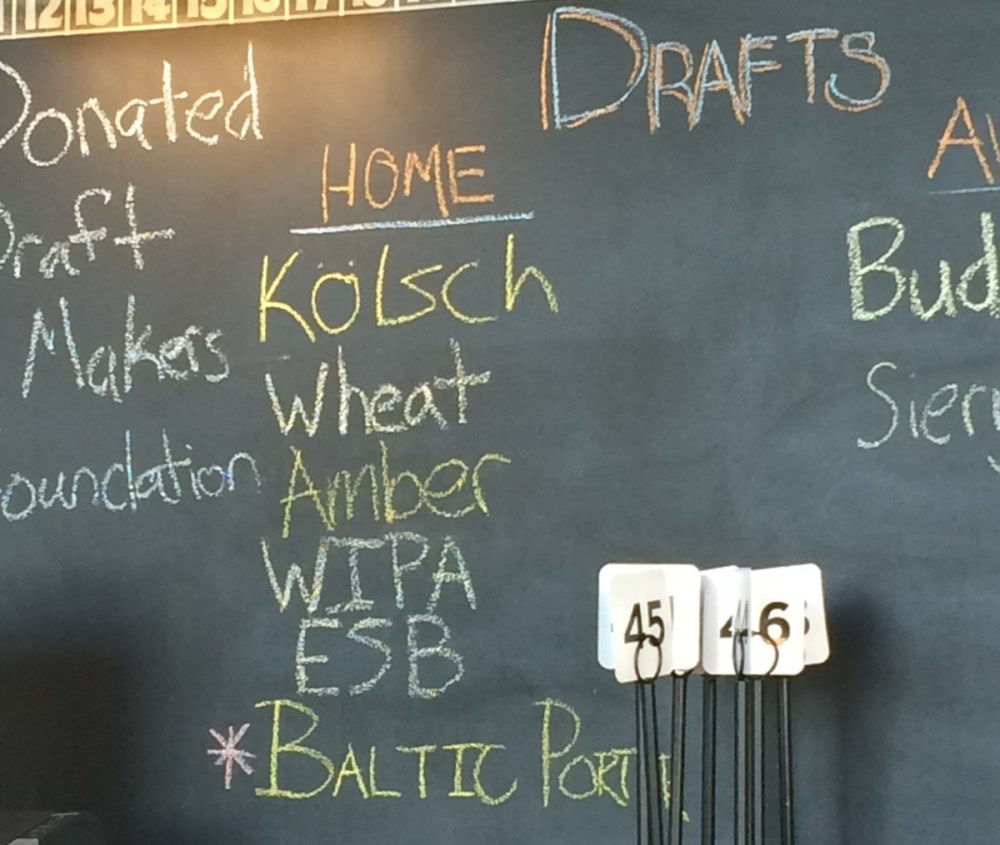 12 13 14 15 16 17 18
Donated
Draft
Makers
DRAFTS
HOME
Kölsch
Wheat
Amber
WIPA
ESB
*BALTIC PORT
Bud
45
6